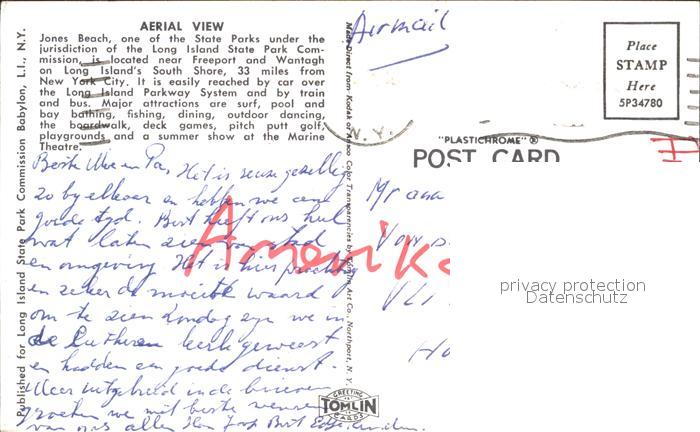 AERIAL VIEW
Jones Beach, one of the State Parks under the
jurisdiction of the Long Island State Park Com-
mission, is located near Freeport and Wantagh
on Long Island's South Shore, 33 miles from
New York City. It is easily reached by car over
the Long Island Parkway System and by train
and bus. Major attractions are surf, pool and
bay bathing, fishing, dining, outdoor dancing,
the boardwalk, deck games, pitch putt golf,
playgrounds and a summer show at the Marine
Theatre.
Published for Long Island State Park Commission Babylon, L.I., N.Y.
Beste Moe en Pa, Het is reuze gezellig
zo by elkaar en hebben we een
goede tyd. Bert heeft ons heel
wat laten zien van stad
en omgeving Het is hier prachtig
en zeker de moeite waard
om te zien Zondag zyn we in
de Lutheran kerk geweest
en hadden een goede dienst.
Meer uitgebreid in de brieven
groeten we met beste wensen
van ons allen Joop Bert
Amerika
Made Direct from Kodak or Ansco Color Transparencies by Tomlin Art Co., Northport, N. Y.
GREETING
TOMLIN
CARDS
Airmail
N.Y.
"PLASTICHROME"®
POST CARD
Place
STAMP
Here
5P34780
Mr
privacy protection
Datenschutz